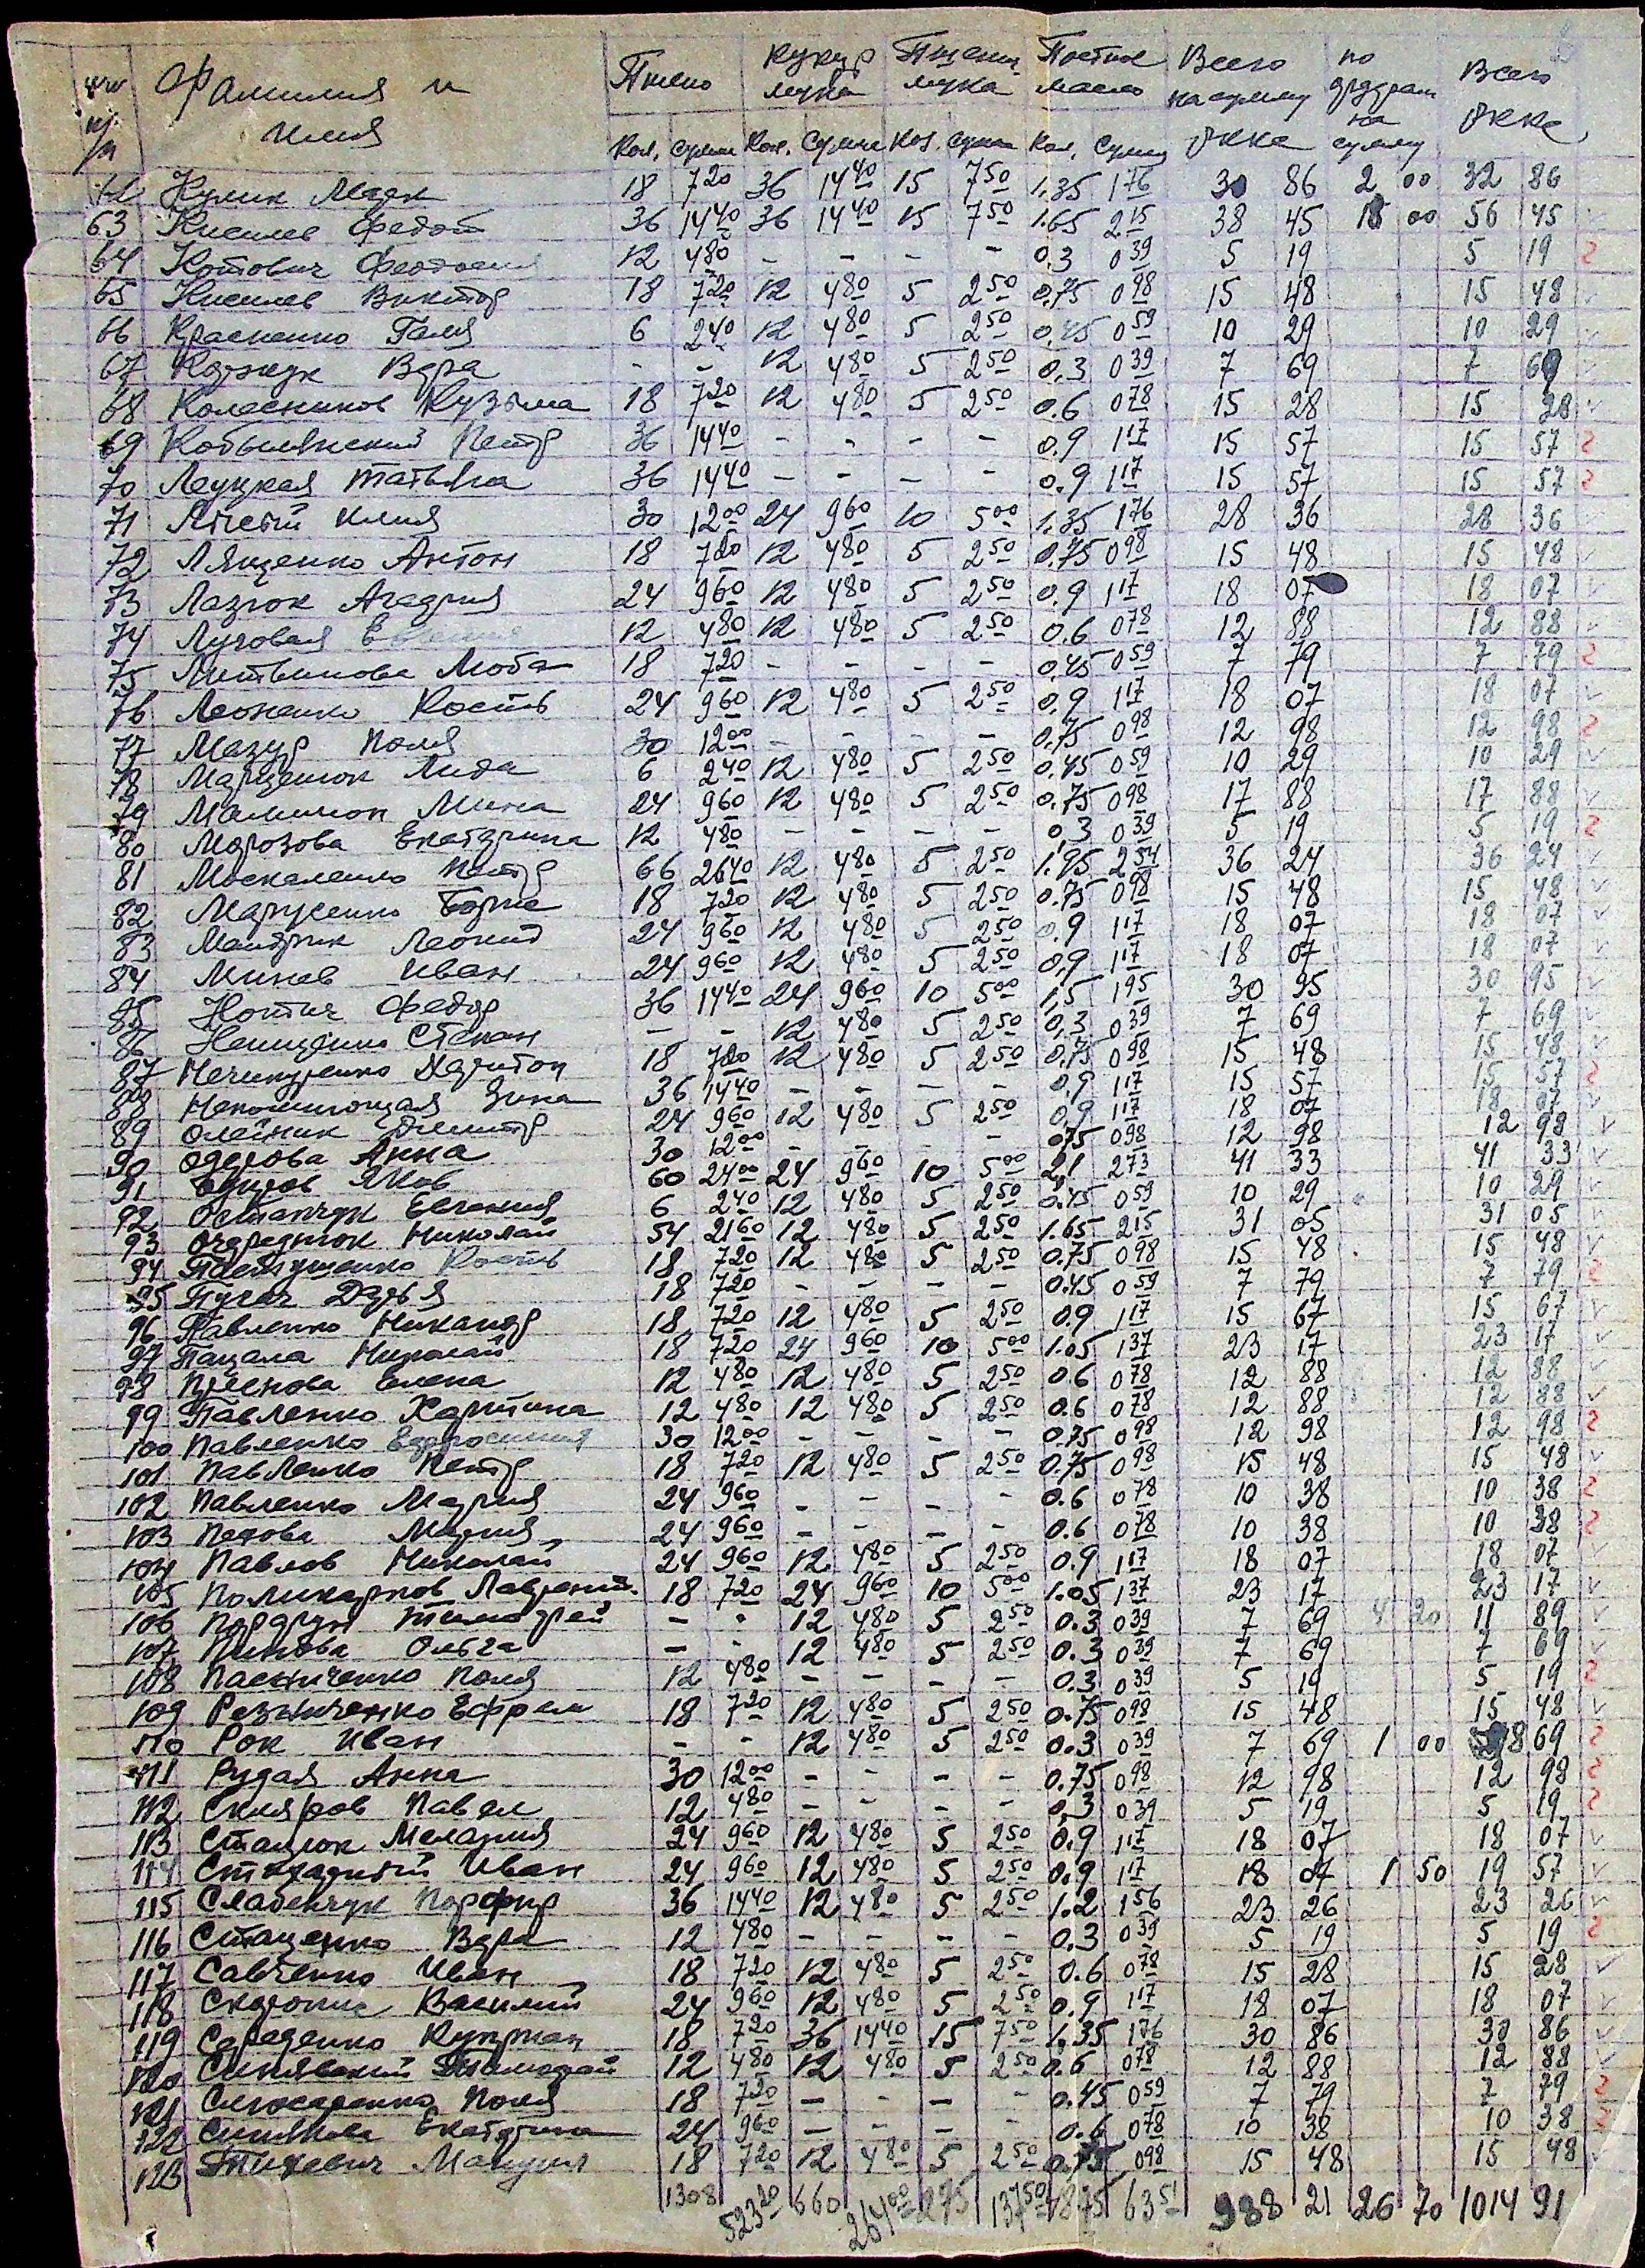 №№ п/п Фамилия и имя Пшено кукур мука Пшенич. мука Постное масло Всего на сумму окке по на сумму Всего Окке
Кол. сумма Кол. Сумма Кол. сумма Кол. Сумма
62 Кулик Марк 18 7 20 36 14 40 15 7 50 1,35 1 76 30 86 2 00 32 86
63 Киселев Федот 36 14 40 36 14 40 15 7 50 1.65 2 15 38 45 18 00 56 45
64 Котович Феодосия 12 4 80 - - - - 0,3 0 39 5 19 5 19
65 Киселев Виктор 18 7 20 12 4 80 5 2 50 0,75 0 98 15 48 15 48
66 Красненко Галя 6 2 40 12 4 80 5 2 50 0,45 0 59 10 29 10 29
67 Коржук Вера - - 12 4 80 5 2 50 0,3 0 39 7 69 7 69
68 Колесников Кузьма 18 7 20 12 4 80 5 2 50 0.6 0 78 15 28 15 28
69 Кобылянский Петр 36 14 40 - - - - 0.9 1 17 15 57 15 57
70 Леуцкая Татьяна 36 14 40 - - - - 0.9 1 17 15 57 15 57
71 Илия 30 12 00 24 9 60 10 5 00 1,35 1 76 28 36 28 36
72 Лященко Антон 18 7 20 12 4 80 5 2 50 0,75 0 98 15 48 15 48
73 Лазюк Агафия 24 9 60 12 4 80 5 2 50 0,9 1 17 18 07 18 07
74 Луговая 12 4 80 12 4 80 5 2 50 0,6 0 78 12 88 12 88
75 Литвинова Люба 18 7 20 - - - - 0,45 0 59 7 79 7 79
76 Леоненко Кость 24 9 60 12 4 80 5 2 50 0,9 1 17 18 07 18 07
77 Мазур Поля 30 12 00 - - - - 0,75 0 98 12 98 12 98
78 Марценюк Лида 6 2 40 12 4 80 5 2 50 0,45 0 59 10 29 10 29
79 Мамилюк Мина 24 9 60 12 4 80 5 2 50 0.75 0 98 17 88 17 88
80 Морозова Екатерина 12 4 80 - - - - 0,3 0 39 5 19 5 19
81 Москаленко Петр 66 26 40 12 4 80 5 2 50 1.95 2 54 36 24 36 24
82 Марусенко Борис 18 7 20 12 4 80 5 2 50 0.75 0 98 15 48 15 48
83 Мандрик Леонид 24 9 60 12 4 80 5 2 50 0,9 1 17 18 07 18 07
84 Минев Иван 24 9 60 12 4 80 5 2 50 0,9 1 17 18 07 18 07
85 Нотич Федор 36 14 40 24 9 60 10 5 00 1,5 1 95 30 95 30 95
86 Нещенко Степан - - 12 4 80 5 2 50 0,3 0 39 7 69 7 69
87 Нечипуренко Харитон 18 7 20 12 4 80 5 2 50 0,75 0 98 15 48 15 48
88 Непомнющая Зина 36 14 40 - - - - 0,9 1 17 15 57 15 57
89 Олейник Дмитр 24 9 60 12 4 80 5 2 50 0,9 1 17 18 07 18 07
90 Одерова Анна 30 12 00 - - - - 075 0 98 12 98 12 98
91 Яков 60 24 00 24 9 60 10 5 00 2,1 2 73 41 33 41 33
92 Остапчук Евгения 6 2 40 12 4 80 5 2 50 0.45 0 59 10 29 10 29
93 Очереднюк Николай 54 21 60 12 4 80 5 2 50 1.65 2 15 31 05 31 05
94 Пастушенко Кость 18 7 20 12 4 80 5 2 50 0.75 0 98 15 48 15 48
95 Пугач Дарья 18 7 20 - - - - 0.45 0 59 7 79 7 79
96 Павленко Никанор 18 7 20 12 4 80 5 2 50 0.9 1 17 15 67 15 67
97 Пацала Николай 18 7 20 24 9 60 10 5 00 1.05 1 37 23 17 23 17
98 Преснова Елена 12 4 80 12 4 80 5 2 50 0.6 0 78 12 88 12 88
99 Павленко Харитина 12 4 80 12 4 80 5 2 50 0.6 0 78 12 88 12 88
100 Павленко Ефросиния 30 12 00 - - - - 0.75 0 98 12 98 12 98
101 Павленко Петр 18 7 20 12 4 80 5 2 50 0.75 0 98 15 48 15 48
102 Павленко Мария 24 9 60 - - - - 0.6 0 78 10 38 10 38
103 Педова Мария 24 9 60 - - - - 0.6 0 78 10 38 10 38
104 Павлов Николай 24 9 60 12 4 80 5 2 50 0.9 1 17 18 07 18 07
105 Поликарпов Лаврентий. 18 7 20 24 9 60 10 5 00 1.05 1 37 23 17 23 17
106 Тимофей - - 12 4 80 5 2 50 0.3 0 39 7 69 4 20 11 89
107 Пинова Ольга - - 12 4 80 5 2 50 0.3 0 39 7 69 7 69
108 Пасниченко Поля 12 4 80 - - - - 0.3 0 39 5 19 5 19
109 Резниченко Ефрем 18 7 20 12 4 80 5 2 50 0.75 0 98 15 48 15 48
110 Рок Иван - - 12 4 80 5 2 50 0.3 0 39 7 69 1 00 8 69
111 Рудая Анна 30 12 00 - - - - 0.75 0 98 12 98 12 98
112 Скляров Павел 12 4 80 - - - - 0,3 0 39 5 19 5 19
113 Стацюк Мелания 24 9 60 12 4 80 5 2 50 0.9 1 17 18 07 18 07
114 Сткрадный Иван 24 9 60 12 4 80 5 2 50 0.9 1 17 18 07 1 50 19 57
115 Слабенчук Порфир 36 14 40 12 4 80 5 2 50 1.2 1 56 23 26 23 26
116 Стаценко Вера 12 4 80 - - - - 0.3 0 39 5 19 5 19
117 Савченко Иван 18 7 20 12 4 80 5 2 50 0.6 0 78 15 28 15 28
118 Василий 24 9 60 12 4 80 5 2 50 0.9 1 17 18 07 18 07
119 Середенко Куприан 18 7 20 36 14 40 15 7 50 1.35 1 76 30 86 30 86
120 Синявский Тимофей 12 4 80 12 4 80 5 2 50 0.6 0 78 12 88 12 88
121 Слюсаренко Поля 18 7 20 - - - - 0.45 0 59 7 79 7 79
122 Синякова Екатерина 24 9 60 - - - - 0.6 0 78 10 38 10 38
123 18 7 20 12 4 80 5 2 50 0.75 0 98 15 48 15 48
1308 523 20 660 264 00 275 137 50 4875 63 51 988 21 26 70 1014 91